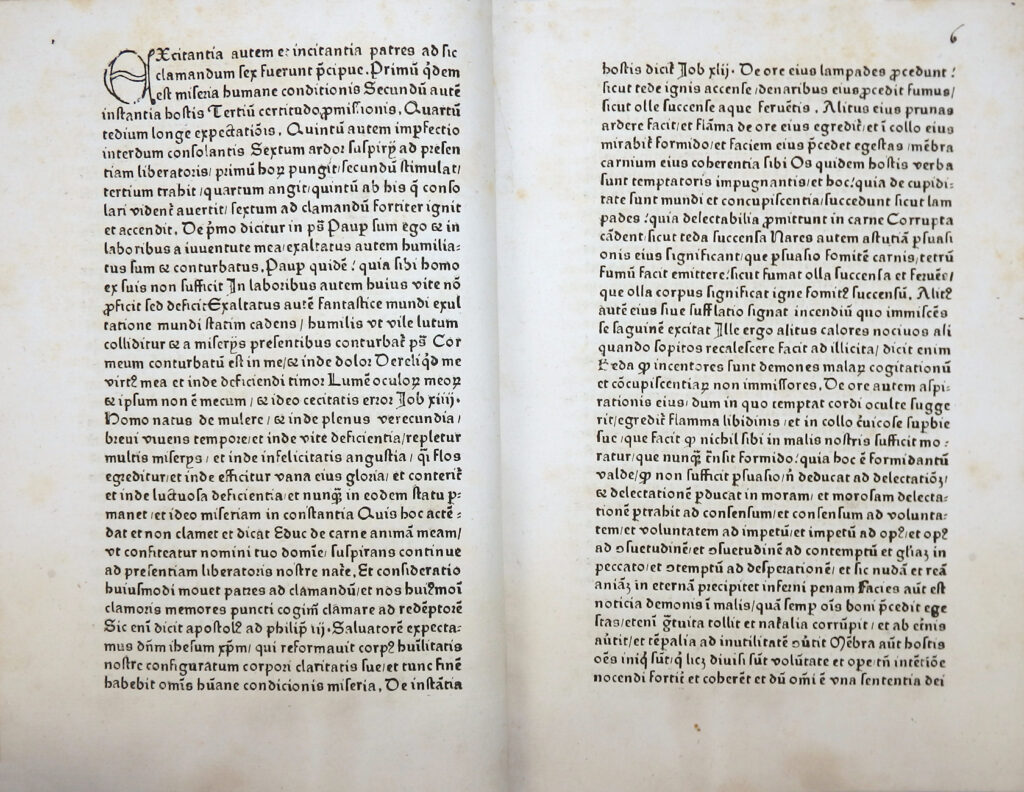 EXcitantia autem et incitantia patres ad sic
clamandum sex fuerunt p̄cipue. Primū q̇dem
est miseria humane conditionis Secundū autē
instantia hostis Tertiū certitudo ꝓmissionis. Quartū
tedium longe expectatiōis. Quintū autem imꝑfectio
interdum consolantis Sextum ardor suspirꝝ ad presen
tiam liberatoris/ primū hoꝝ pungit/secundū stimulat/
tertium trahit/quartum angit/quintū ab his q̄ conso
lari videnť auertit/ sextum ad clamandū fortiter ignit
et accendit. De p̄mo dicitur in pš Paup̱ sum ego & in
laboribus a iuuentute mea/exaltatus autem humilia⸗
tus sum & conturbatus. Paup̱ quidē/ quia sibi homo
ex suis non sufficit In laboribus autem huius vite nō
ꝓficit sed deficit Exaltatus autē fantastice mundi exul
tatione mundi statim cadens/ humilis vt vile lutum
colliditur & a miserꝝs presentibus conturbať pš Cor
meum conturbatū est in me/& inde dolor Dereliq̇d me
virtꝰ mea et inde deficiendi timor Lumē oculoꝝ meoꝝ
& ipsum non ē mecum/ & ideo cecitatis error Job xiiij.
Homo natus de mulere/ & inde plenus verecundia/
breui viuens tempore/et inde vite deficientia/repletur
multis miserꝝs/ et inde infelicitatis angustia/ q̄i flos
egreditur/et inde efficitur vana eius gloria/ et conteriť
et inde luctuosa deficientia/et nunq̄ in eodem statu p̱⸗
manet/et ideo miseriam in constantia Quis hoc actē⸗
dat et non clamet et dicat Educ de carne animā meam/
vt confiteatur nomini tuo domīe/ suspirans continue
ad presentiam liberatoris nostre naťe. Et consideratio
huiusmodi mouet patres ad clamandū/et nos huiꝰmoi
clamoris memores puncti cogim̄ clamare ad redēptorē
Sic enī dicit apostolꝰ ad philip̄ iij. Saluatorē expecta⸗
mus dn̄m ihesum xp̄m/ qui reformauit corpꝰ hūilitatis
nostre configuratum corpori claritatis sue/et tunc finē
habebit omīs hūane condicionis miseria. De instātia
6
hostis diciť Job xlij. De ore eius lampades ꝓcedunt/
sicut tede ignis accense/de naribus eius ꝓcedit fumus/
sicut olle succense aque feruētis. Alitus eius prunas
ardere facit/et flāma de ore eius egrediť/et ī collo eius
mirabiť formido/et faciem eius p̄cedet egestas/mēbra
carnium eius coherentia sibi Os quidem hostis verba
sunt temptatoris impugnantis/et hoc/quia de cupidi⸗
tate sunt mundi et concupiscentia/succedunt sicut lam
pades/quia delectabilia ꝓmittunt in carne Corrupta
cādent/sicut teda succensa Nares autem astutiā p̱suasi
onis eius significant/que p̱suasio fomitē carnis/tetrū
fumū facit emittere/sicut fumat olla succensa et feruēs/
que olla corpus significat igne fomitꝰ succensū. Alitꝰ
autē eius siue sufflatio signat incendiū quo immiscēs
se saguinē excitat Ille ergo alitus calores nociuos ali
quando sopitos recalescere facit ad illicita/ dicit enim
Beda ꝙ incentores sunt demones malaꝝ cogitationū
et cōcupiscentiaꝝ non immissores. De ore autem aspi⸗
rationis eius/dum in quo temptat cordi oculte sugge
rit/egrediť flamma libidinis/et in collo c̄uicose sup̱bie
sue/que facit ꝙ nichil sibi in malis nostris sufficit mo⸗
ratur/que nunq̄ t̄nsit formido/quia hoc ē formidantū
valde/ꝙ non sufficit p̱suasio/ñ deducat ad delectatiōꝫ/
& delectationē p̱ducat in moram/et morosam delecta⸗
tionē p̱trahit ad consensum/et consensum ad volunta⸗
tem/et voluntatem ad impetū/et impetū ad opꝰ/et opꝰ
ad ꝯsuetudinē/et ꝯsuetudinē ad contemptū et gliaꝫ in
peccato/et ꝯtemptū ad desperationē/et sic nudā et reā
aniaꝫ in eternā precipitet inferni penam Facies aūt est
noticia demonis ī malis/quā semp̱ oīs boni p̄cedit ege
stas/etenī g̈tuita tollit et naťalia corrūpit/et ab et̄nis
aūtit/et tēp̱alia ad inutilitatē ꝯūtit Mēbra aūt hostis
oēs iniq̇ sūt/q̇ licꝫ diuisi sūt volūtate et ope/tn̄ intētiōe
nocendi fortiť et coherēt et dū om̄i ē vna sententia dei